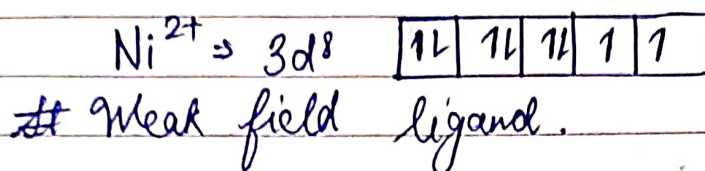 Ni²⁺ ⇒ 3d⁸ 1L 1L 1L 1 1
# Weak field ligand.